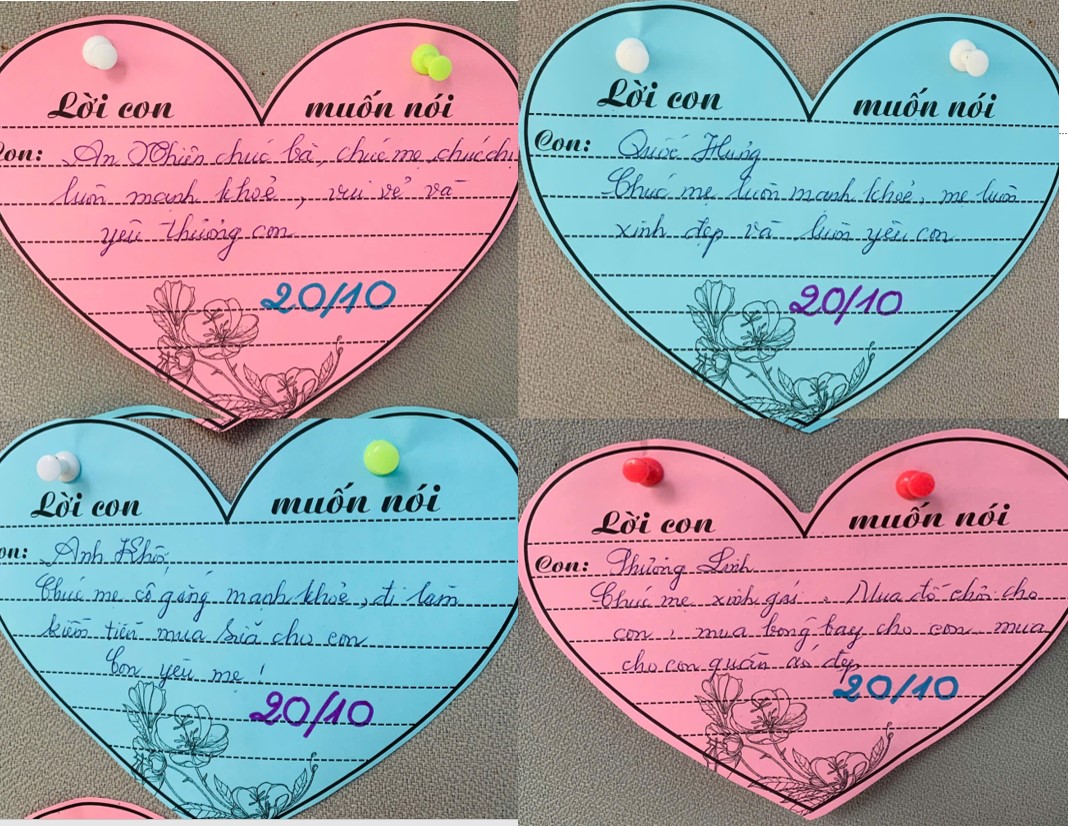 Lời con muốn nói
Con: An Nhiên chúc bà, chúc mẹ, chúc chị
luôn mạnh khoẻ, vui vẻ và
yêu thương con
20/10
Lời con muốn nói
Con: Quốc Hưng
Chúc mẹ luôn mạnh khoẻ, mẹ luôn
xinh đẹp và luôn yêu con
20/10
Lời con muốn nói
on: Anh Khôi
Chúc mẹ cố gắng mạnh khoẻ, đi làm
kiếm tiền mua sữa cho con
Con yêu mẹ!
20/10
Lời con muốn nói
Con: Phương Linh
Chúc mẹ xinh gái. Mua đồ chơi cho
con, mua bóng bay cho con mua
cho con quần áo đẹp
20/10